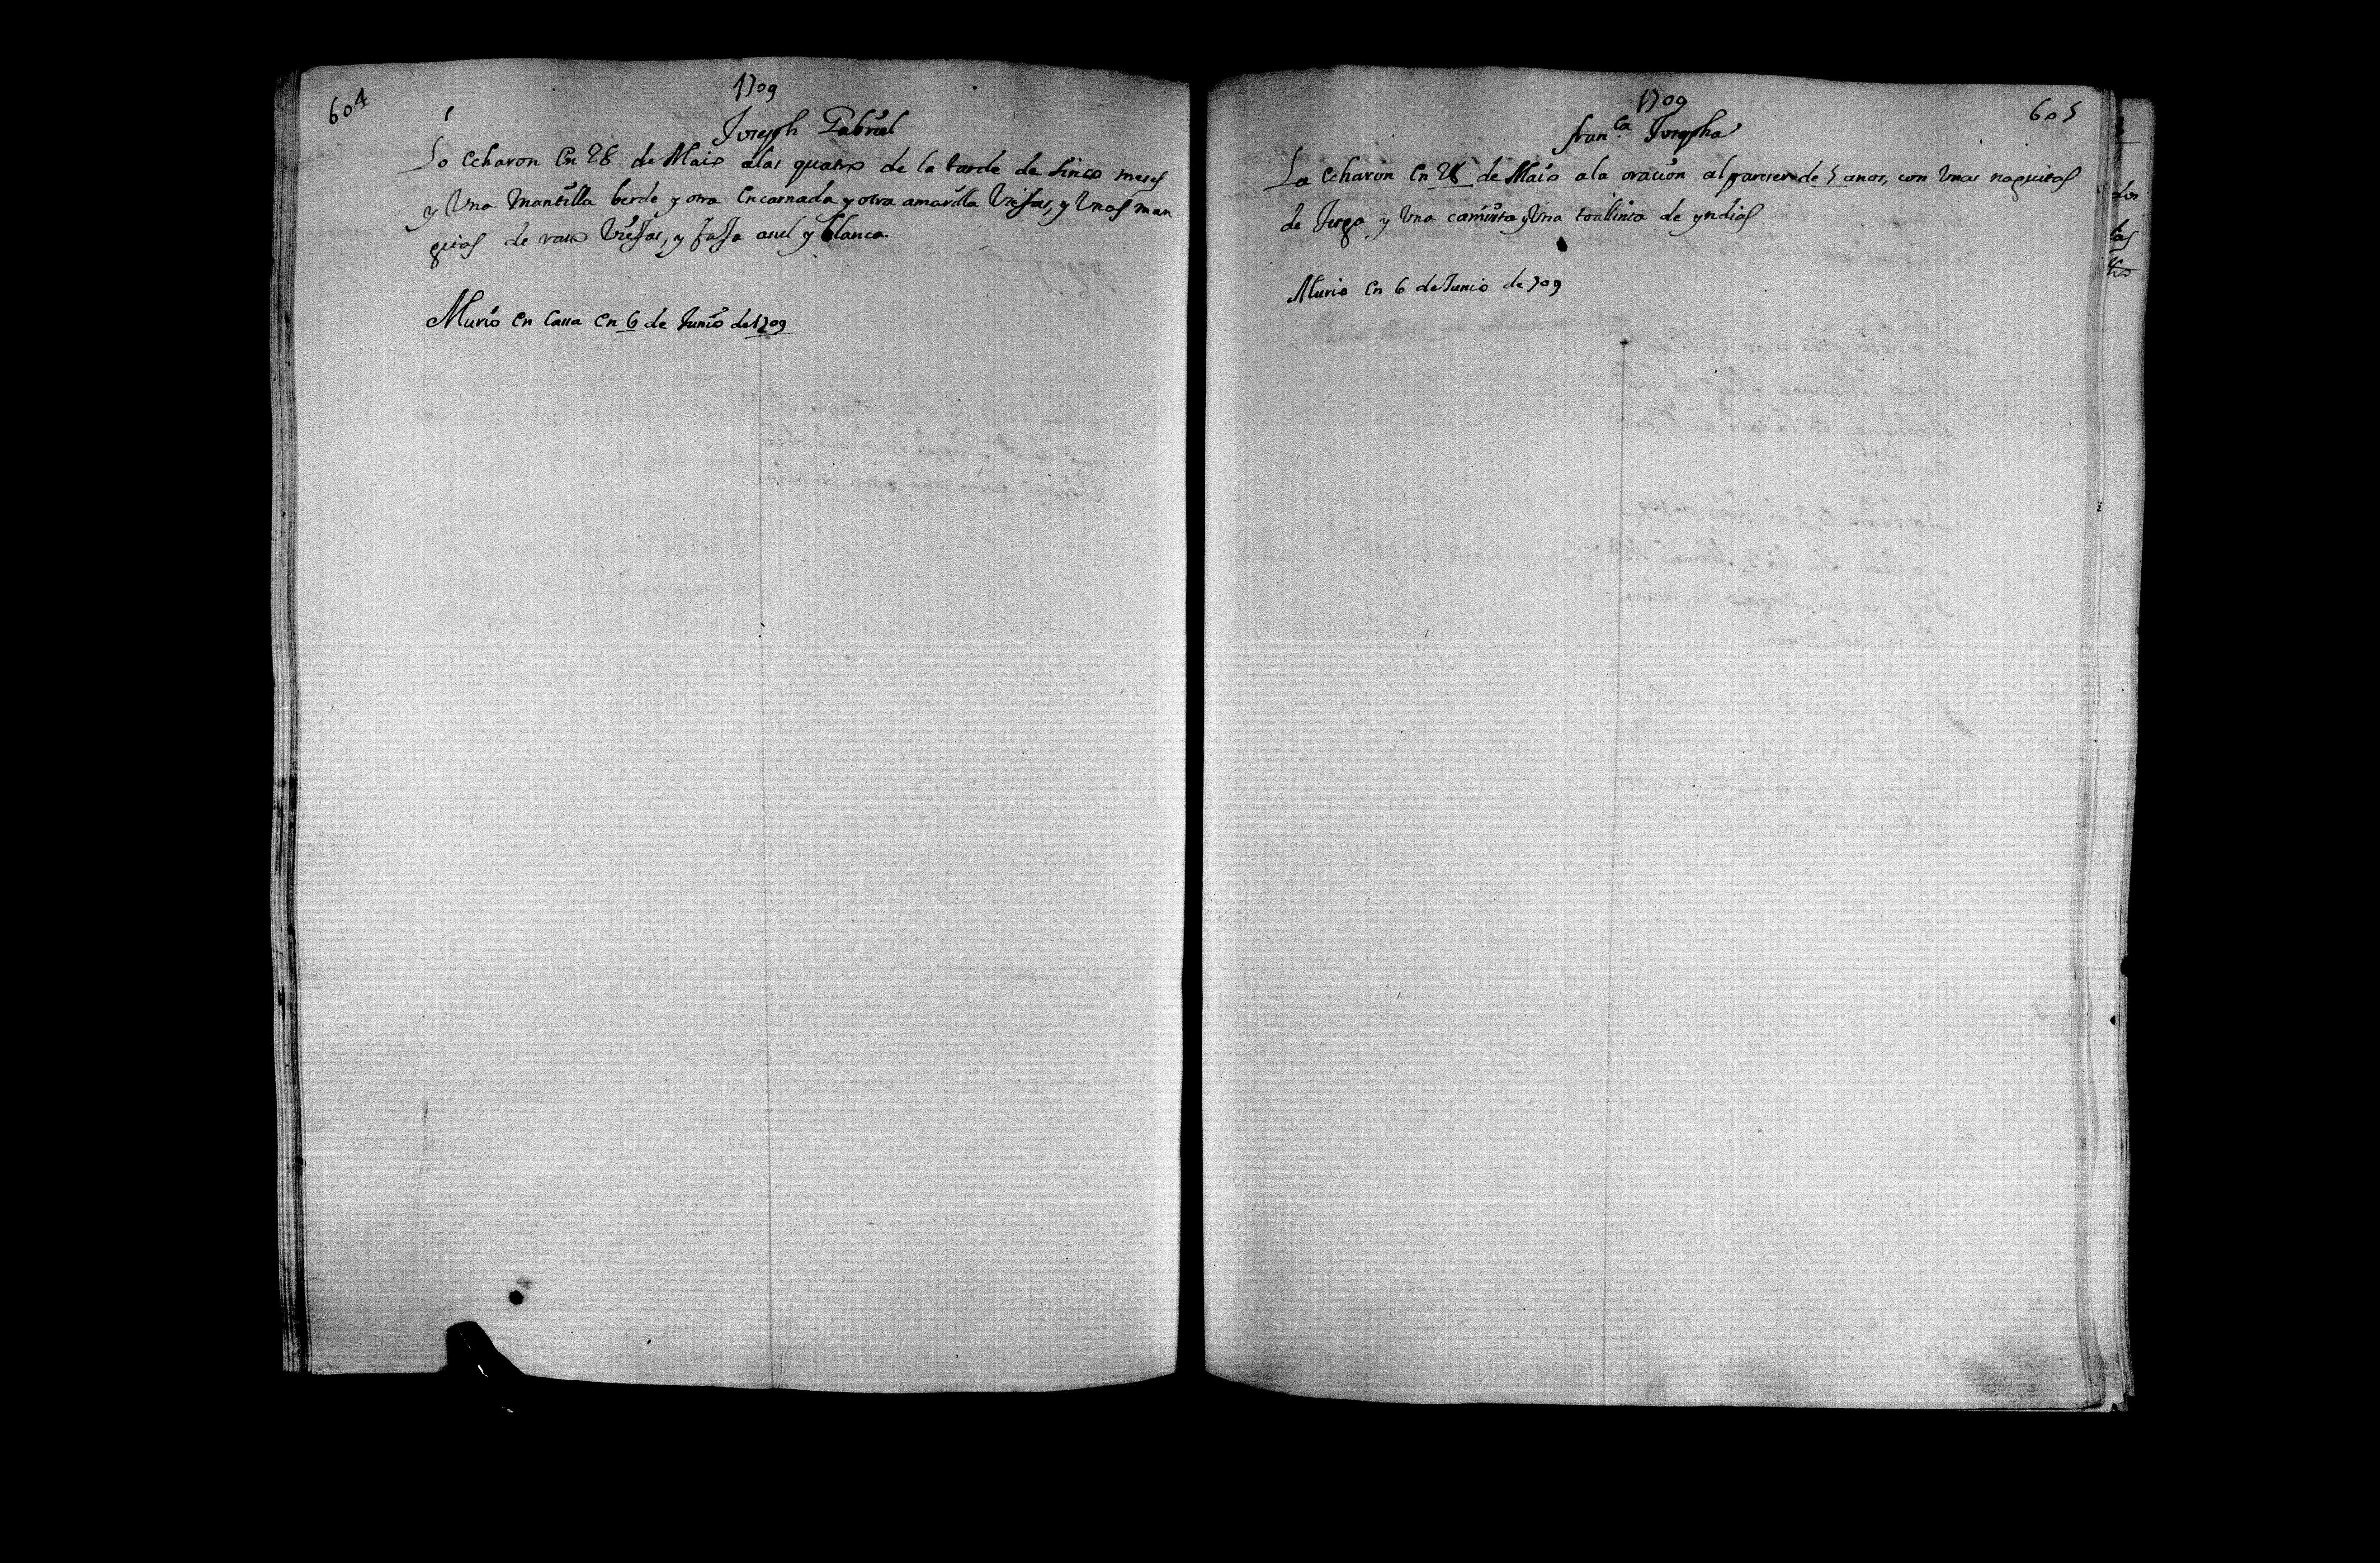 604
1709
Joseph Gabriel
Lo echaron en 28 de Maio alas quatro de la tarde de sinco meses
y Una Mantilla berde y otra encarnada y otra amarilla Viejas, y Unas man
guias de raso Viejas, y faja asul y blanca.
Murio en Cassa en 6 de Junio de 1709
1709
605
franca Josepha
La echaron en 28 de Maio ala oracion al pareser de 5 anos, con Unas naguitas
de Jerga y Una camisita y Una toallita de yndias
Murio en 6 de Junio de 709